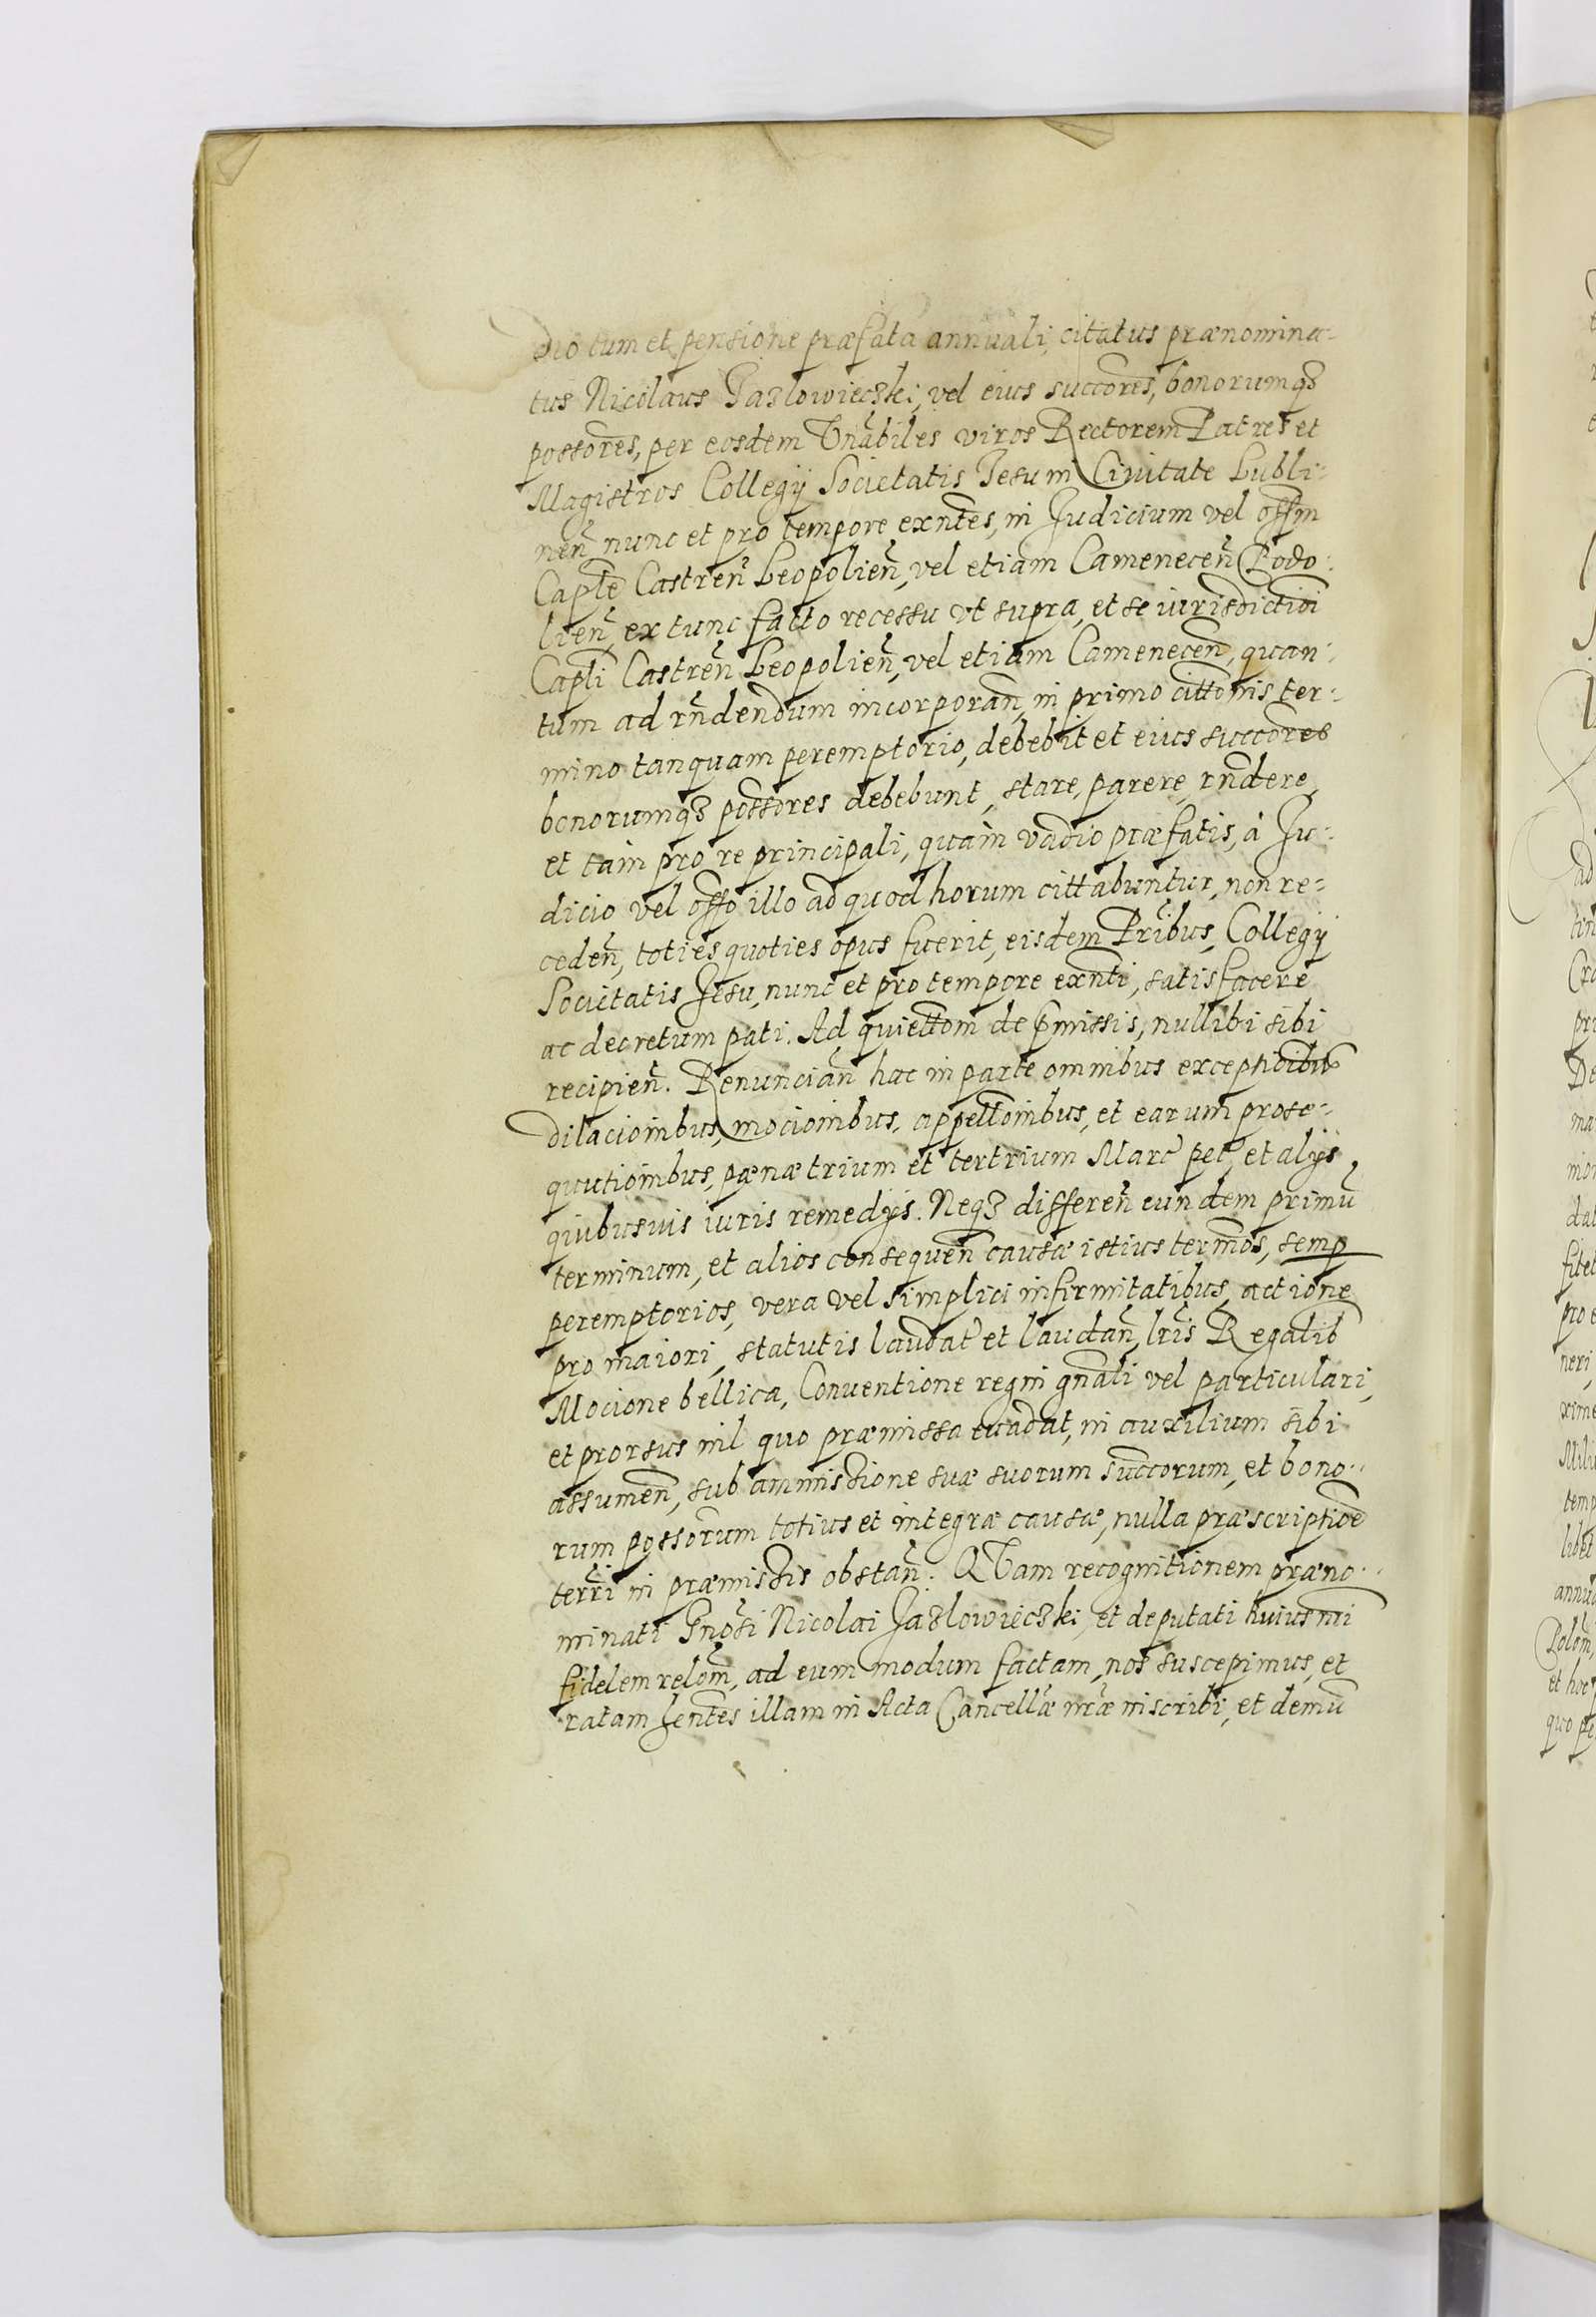 dio tum et pensione præfata annuali, citatus prænomina-
tus Nicolaus Jazlowieczki, vel eius succōres, bonorumqȝ
possōres, per eosdem Vn̄abiles viros Rectorem Patres et
Magistros Collegÿ Societatis Jesu in Ciuitate Lubli-
nen̄ nunc et pro tempore exn̄tes, in Judicium vel offm̄
Capt̄e Castren̄ Leopolien̄, vel etiam Camenecen̄ Podo-
lien̄ ex tunc facto recessu vt supra, et se iurisdictioī
Capt̄i Castren̄ Leopolien̄, vel etiam Camenecen̄, quan-
tum ad rn̄dendum incorporan̄, in primo citt̄onis ter-
mino tanquam peremptorio, debebit et eius succōres
bonorumqȝ possōres debebunt, stare, parere, rn̄dere,
et tam pro re principali, quam vadio præfatis, à Ju-
dicio vel offō illo ad quod horum cittabuntur, non re-
ceden̄, toties quoties opus fuerit, eisdem Pr̄ibus, Collegÿ
Societatis Jesu, nunc et pro tempore exn̄ti, satisfacere
ac decretum pati. Ad quiett̄om de p̄missis, nullibi sibi
recipien̄. Renuncian̄ hac in parte omnibus exceptioībus
dilacioībus, mocioībus, appellōībus, et earum prose-
quutioībus, pænæ trium et tertrium Marc̄ pec̄, et alÿs
quibusuis iuris remedÿs. Neqȝ differen̄ eundem primū
terminum, et alios consequen̄ causæ istius term̄os, semp̱
peremptorios, vera vel simplici infirmitatibus, actione
pro maiori, statutis laudat̄ et laudan̄, lr̄is Regalib
Mocione bellica, Conuentione regni gn̄ali vel particulari,
et prorsus nil quo præmissa euadat, in auxilium sibi
assumen̄, sub ammissione suæ suorum succ̄orum, et bono-
rum poss̄orum totius et integræ causæ, nulla præscriptioē
terr̄i in præmissis obstan̄. QVam recognitionem præno-
minati Gn̄osi Nicolai Jazlowieczki, et deputati huiusm̄i
fidelem relōm̄, ad eum modum factam, nos suscepimus, et
ratam hen̄tes illam in Acta Cancell̄æ nr̄æ inscribi, et demū